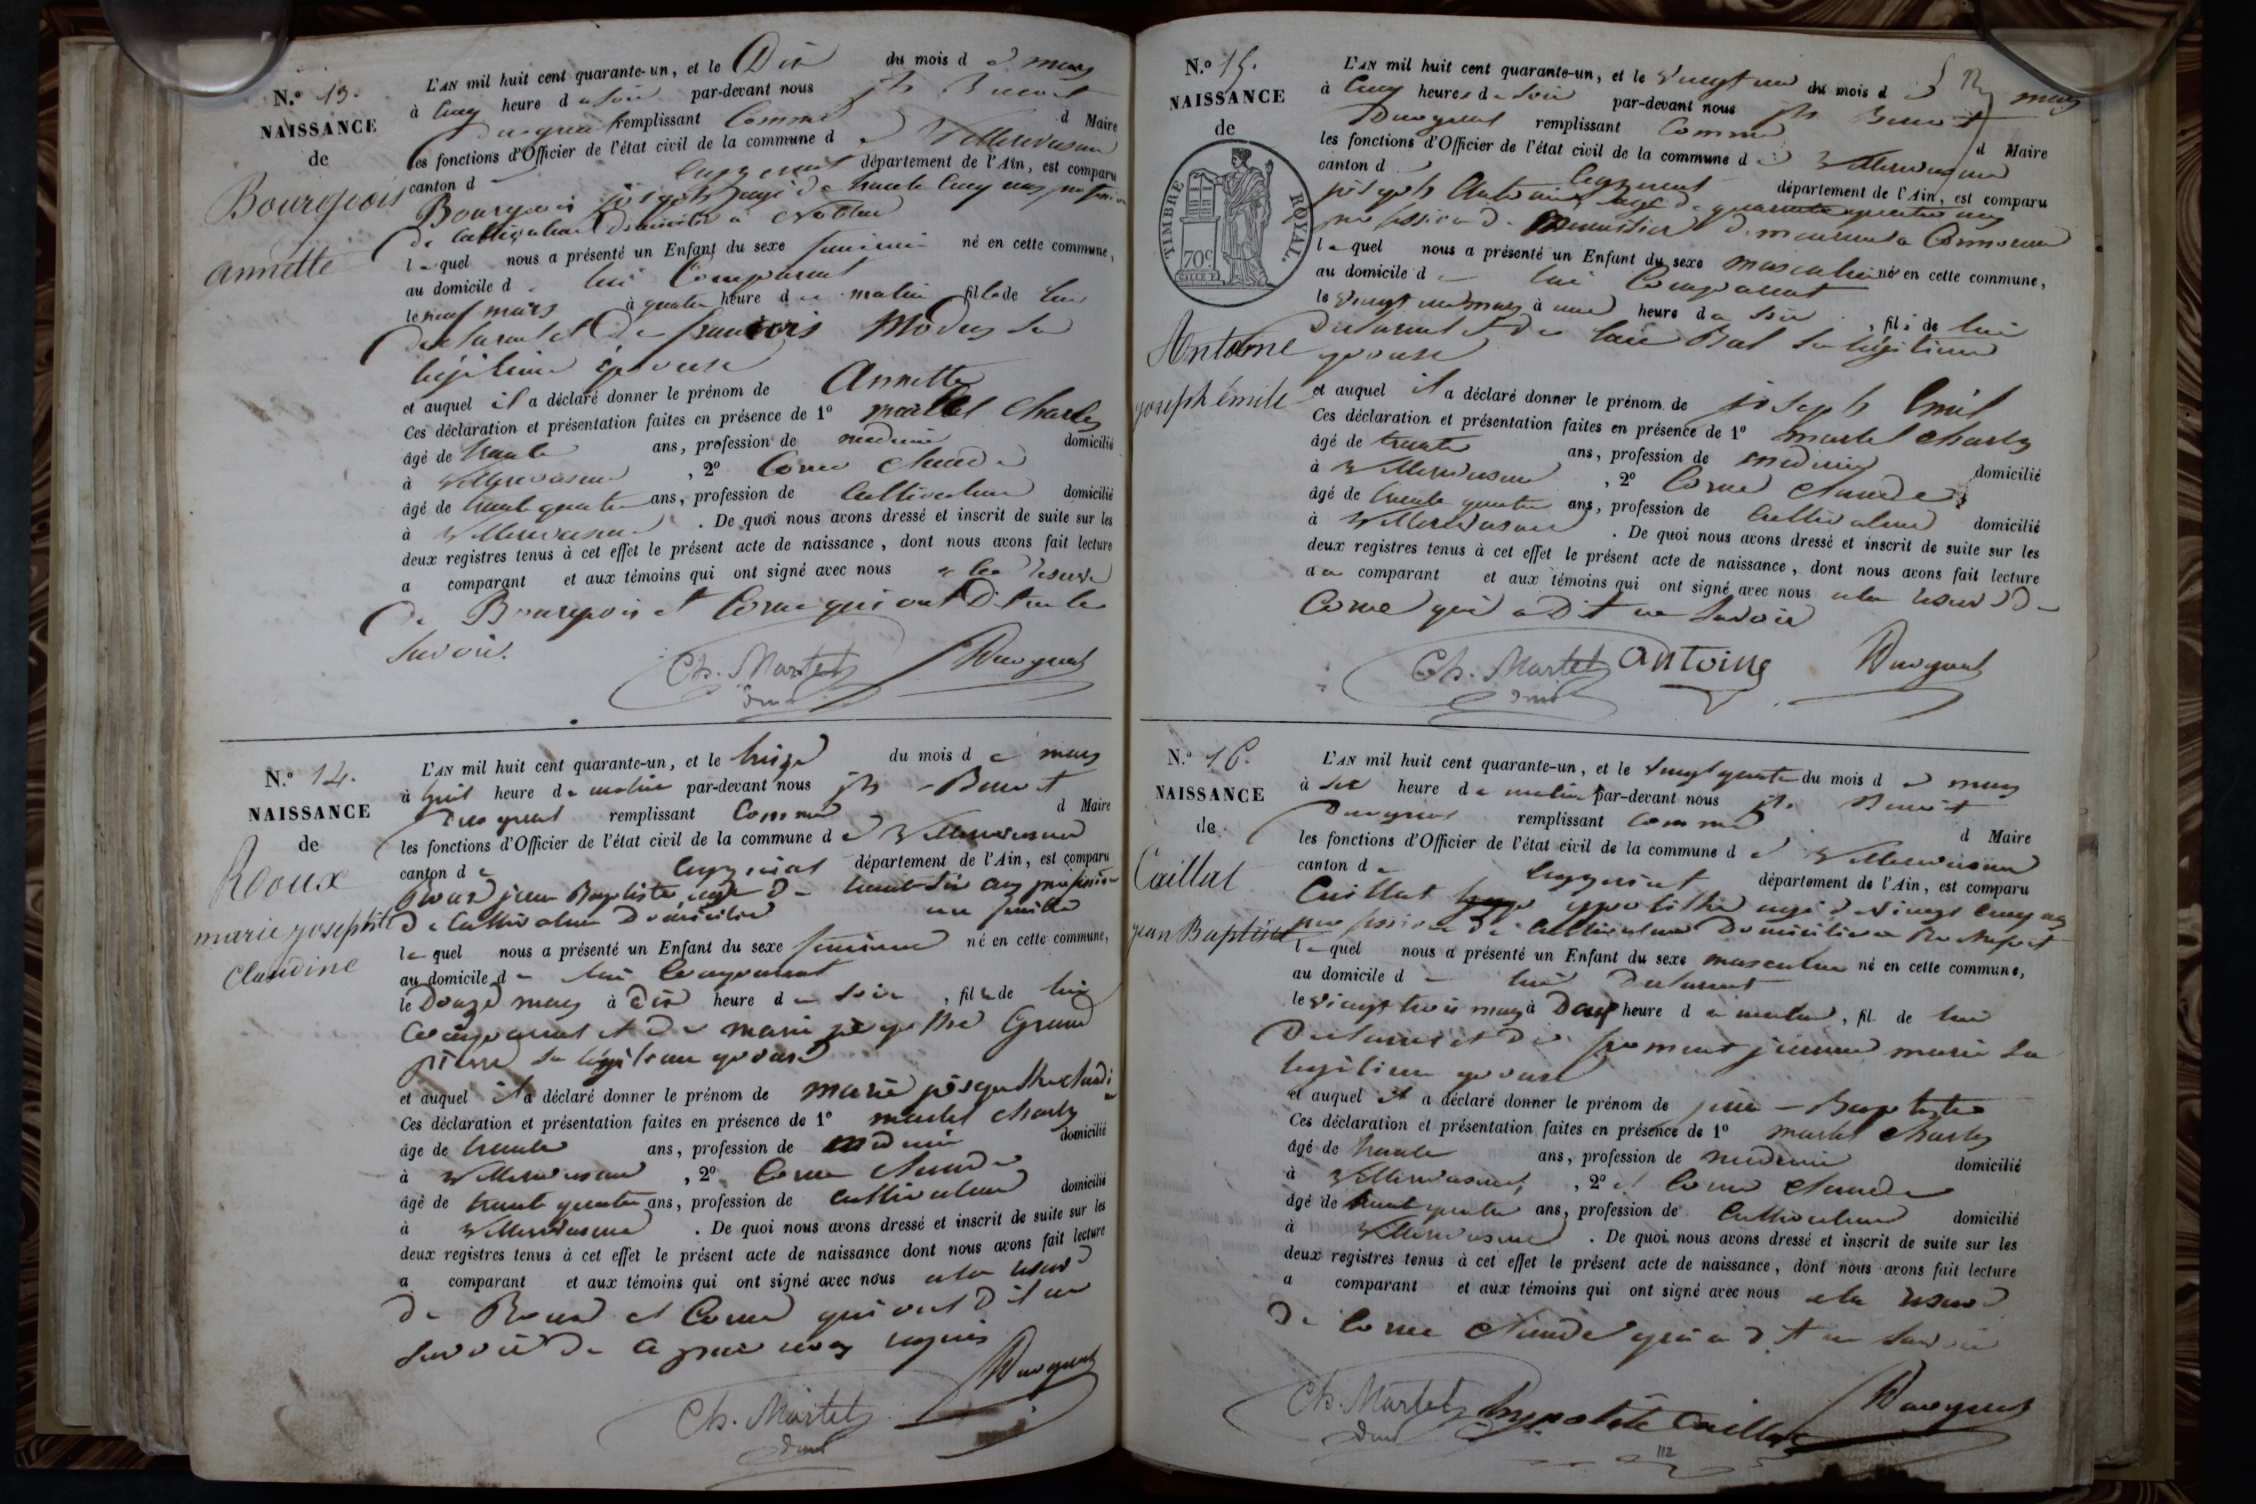 N.º 13.
NAISSANCE
de
Bourgeois
annette
L'AN mil huit cent quarante-un, et le Dix du mois d e mars
à Cinq heure d u soir par-devant nous jh Benoit
remplissant Comme d Maire
les fonctions d'Officier de l'état civil de la commune d e Villereversure
canton d département de l'Ain, est comparu
Bourgeois joseph agé de trente Cinq ans profession
de Cultivateur domicilié à
l e quel nous a présenté un Enfant du sexe feminin né en cette commune,
au domicile d lui Comparant
le neuf mars à quatre heure d u matin fille de lui
declarant et De françois Modas Sa
légitime épouse
et auquel il a déclaré donner le prénom de Annette
Ces déclaration et présentation faites en présence de 1º martel Charles
âgé de trente ans, profession de medecin domicilié
à Villereversure , 2º Corne Claude
âgé de trente quatre ans, profession de Cultivateur domicilié
à Villereversure . De quoi nous avons dressé et inscrit de suite sur les
deux registres tenus à cet effet le présent acte de naissance, dont nous avons fait lecture
a comparant et aux témoins qui ont signé avec nous
De Bourgeois et Corne qui ont Dit ne le
Savoir.
Ch. Martel
N.º 14.
NAISSANCE
de
Roux
marie josephte
Claudine
L'AN mil huit cent quarante-un, et le treize du mois d e mars
à huit heure d u matin par-devant nous jh Benoit
remplissant Comme d Maire
les fonctions d'Officier de l'état civil de la commune d e Villereversure
canton d e département de l'Ain, est comparu
Roux jean Baptiste agé De trente Six ans profession
De Cultivateur Domicilié
l e quel nous a présenté un Enfant du sexe feminin né en cette commune,
au domicile d e lui Comparant
le Douze mars à dix heure d u soir , fille de lui
Comparant et De marie josephte Grand
pierre Sa légitime épouse
et auquel il a déclaré donner le prénom de marie josephte Claudi
ne
Ces déclaration et présentation faites en présence de 1º martel Charles
âge de trente ans, profession de medecin domicilié
à Villereversure , 2º Corne Claude
âgé de trente quatre ans, profession de Cultivateur domicilié
à Villereversure . De quoi nous avons dressé et inscrit de suite sur les
deux registres tenus à cet effet le présent acte de naissance dont nous avons fait lecture
a comparant et aux témoins qui ont signé avec nous
de Roux et Corne qui ont Dit ne
Savoir De Ce requis
Ch. Martel
N.º 15.
NAISSANCE
de
TIMBRE ROYAL.
70c
Antoine
joseph émile
L'AN mil huit cent quarante-un, et le vingt un du mois d e mars
à Cinq heures d u soir par-devant nous jh Benoit
remplissant Comme d Maire
les fonctions d'Officier de l'état civil de la commune d e Villereversure
canton d département de l'Ain, est comparu
joseph Antoine agé de quarante quatre ans
profession de demeurant a
l e quel nous a présenté un Enfant du sexe masculin né en cette commune,
au domicile d e lui Comparant
le vingt un mars à une heure d u soir , fils de lui
Declarant et De Bal Sa légitime
épouse
et auquel il a déclaré donner le prénom de joseph Emil
Ces déclaration et présentation faites en présence de 1º martel Charles
âgé de trente ans, profession de medecin domicilié
à Villereversure , 2º Corne Claude
âgé de trente quatre ans, profession de Cultivateur domicilié
à Villereversure . De quoi nous avons dressé et inscrit de suite sur les
deux registres tenus à cet effet le présent acte de naissance, dont nous avons fait lecture
au comparant et aux témoins qui ont signé avec nous
Corne qui a Dit ne Savoir
Ch. Martel antoine
N.º 16.
NAISSANCE
de
Caillat
jean Baptiste
L'AN mil huit cent quarante-un, et le vingt quatre du mois d e mars
à six heure d u matin par-devant nous jh Benoit
remplissant Comme d Maire
les fonctions d'Officier de l'état civil de la commune d e Villereversure
canton d e département de l'Ain, est comparu
Caillat agé De vingt Cinq ans
profession De Cultivateur Domicilié a Rochefort
l e quel nous a présenté un Enfant du sexe masculin né en cette commune,
au domicile d e lui Declarant
le vingt trois mars à Deux heure d u matin , fil de lui
Declarant et De froment jeanne marie Sa
légitime épouse
et auquel il a déclaré donner le prénom de jean-Baptiste
Ces déclaration et présentation faites en présence de 1º martel Charles
âgé de trente ans, profession de medecin domicilié
à Villereversure , 2º Corne Claude
âgé de trente quatre ans, profession de Cultivateur domicilié
à Villereversure . De quoi nous avons dressé et inscrit de suite sur les
deux registres tenus à cet effet le présent acte de naissance, dont nous avons fait lecture
a comparant et aux témoins qui ont signé avec nous
De Corne Claude qui a Dit ne Savoir
Ch. Martel hypolite Caillat
112